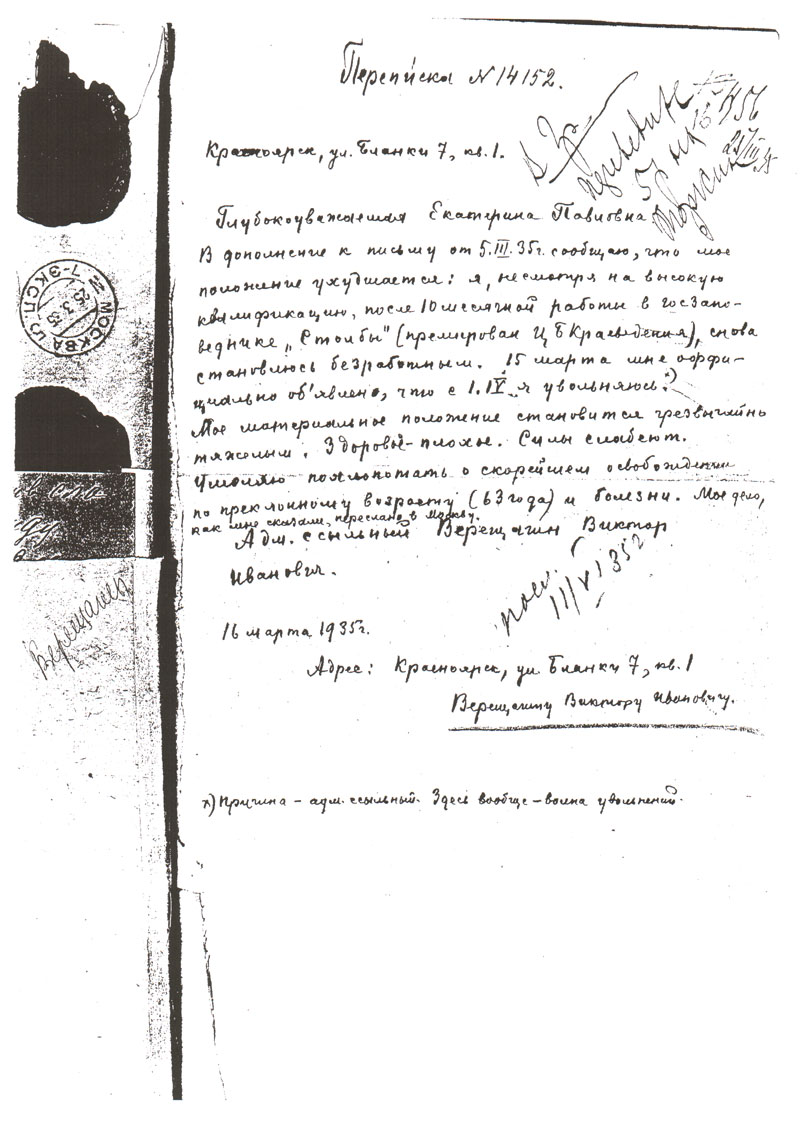 Переписка N 14152.
Красноярск, ул. Бланки 7, кв. 1.
Глубокоуважаемая Екатерина Павловна
В дополнение к письму от 5.III.35г. сообщаю, что мое
положение ухудшается: я, несмотря на высокую
квалификацию, после 10 месячной работы в госзапо-
веднике „Столбы" (премирован ЦБКраеведения), снова
становлюсь безработным. 15 марта мне оффи-
циально об'явлено, что с 1.IV я увольняюсь.х)
Мое материальное положение становится чрезвычайно
тяжелым. Здоровье - плохое. Силы слабеют.
Умоляю похлопотать о скорейшем освобождении
по преклонному возрасту (63 года) и болезни. Мое дело,
как мне сказали, переслано в Москву.
Адм. ссыльный Верещагин Виктор
Иванович.
16 марта 1935г.
Адрес: Красноярск, ул Бланки 7, кв. 1
Верещагину Виктору Ивановичу.
х) Причина - адм. ссыльный. Здесь вообще - волна увольнений.
МОСКВА
25.3.35
7-ЭКСП.
Верещагин